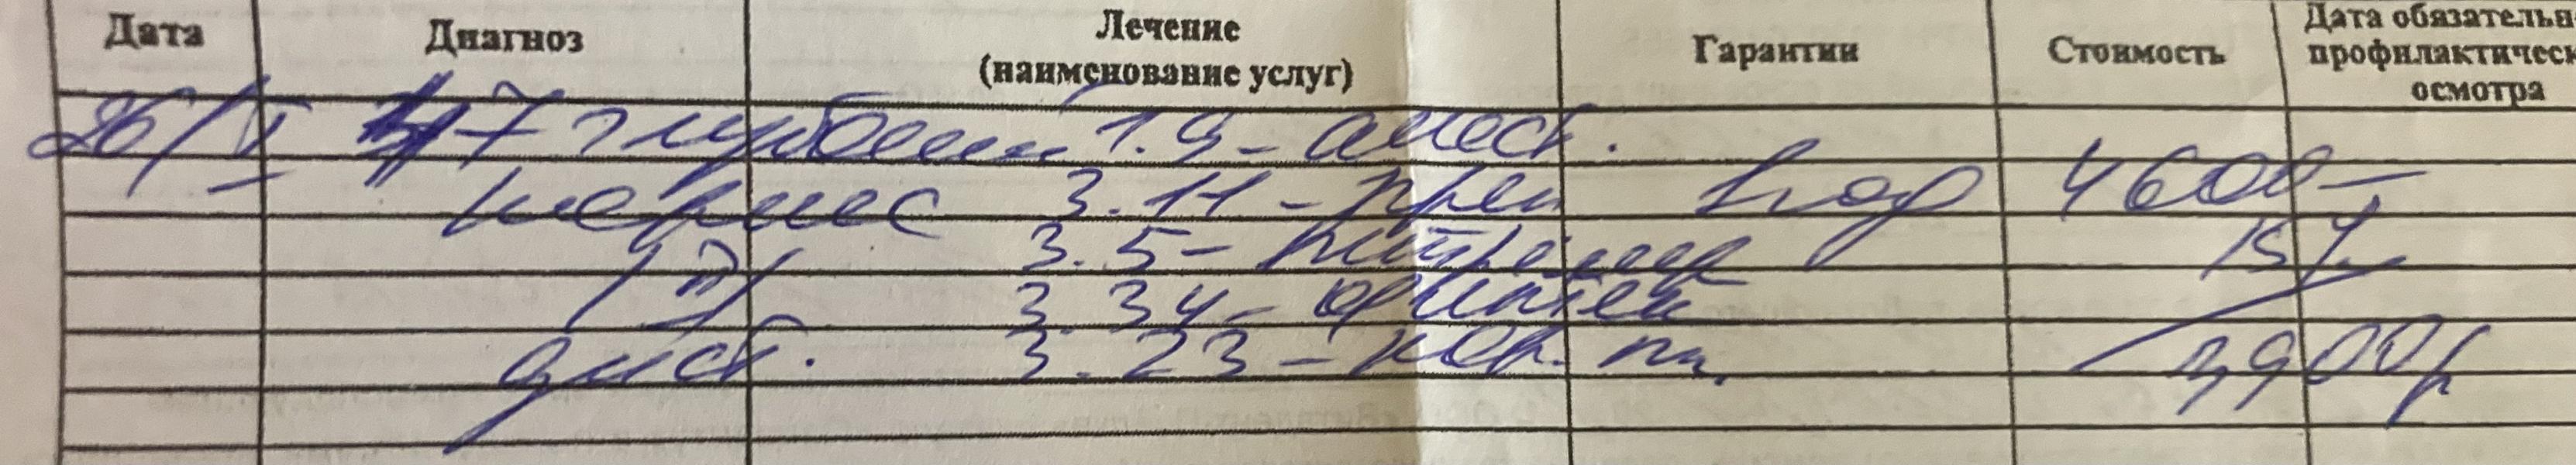 Дата Диагноз Лечение (наименование услуг) Гарантии Стоимость Дата обязательн профилактическ осмотра
26/V 47 глубокий 1.9 - анест.
кариес 3.11 - преп год 4600-
/Д/ 3.5 - 15%
дист. 3.34 -
3.23 - пл. 3900р